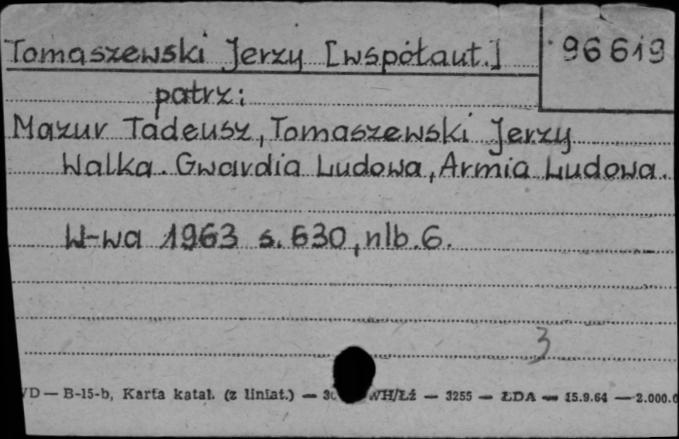 Tomaszewski Jerzy [współaut.] 96619
patrz:
Mazur Tadeusz, Tomaszewski Jerzy
Walka. Gwardia Ludowa, Armia Ludowa.
W-wa 1963 s. 630, nlb. 6.
3
VD — B-15-b, Karta katal. (z liniat.) — WH/Łź — 3255 — ŁDA — 15.9.64 — 2.000.0